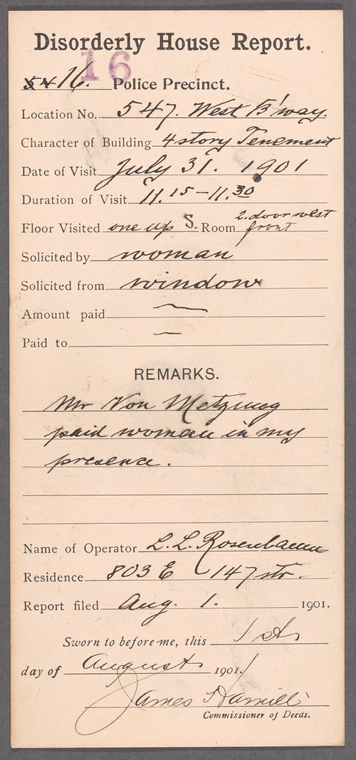 Disorderly House Report.
16
16. Police Precinct.
Location No. 547. West B'way.
Character of Building 4 story Tenement
Date of Visit July 31. 1901
Duration of Visit 11.15 – 11.30
Floor Visited one up S. Room 2. door west front
Solicited by woman
Solicited from window
Amount paid —
Paid to —
REMARKS.
Mr Von
paid woman in my
presence.
Name of Operator L. L. Rosenbaum
Residence 803 E 147 str.
Report filed Aug. 1. 1901.
Sworn to before me, this 1st
day of August 1901.
James Hamill
Commissioner of Deeds.